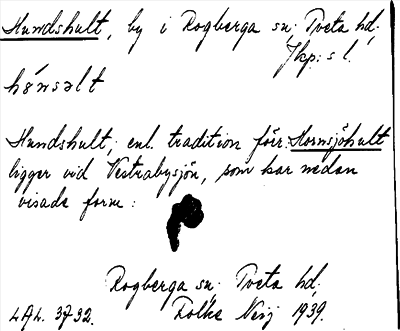 Hundshult, by i Rogberga sn, Tveta hd,
Jkp:s l.
hónsəlt
Hundshult, enl. tradition förr Hornsjöhult
ligger vid Vestrabysjön, som har nedan
visade form:
Rogberga sn, Tveta hd,
LAL. 3732. Folke 1939.